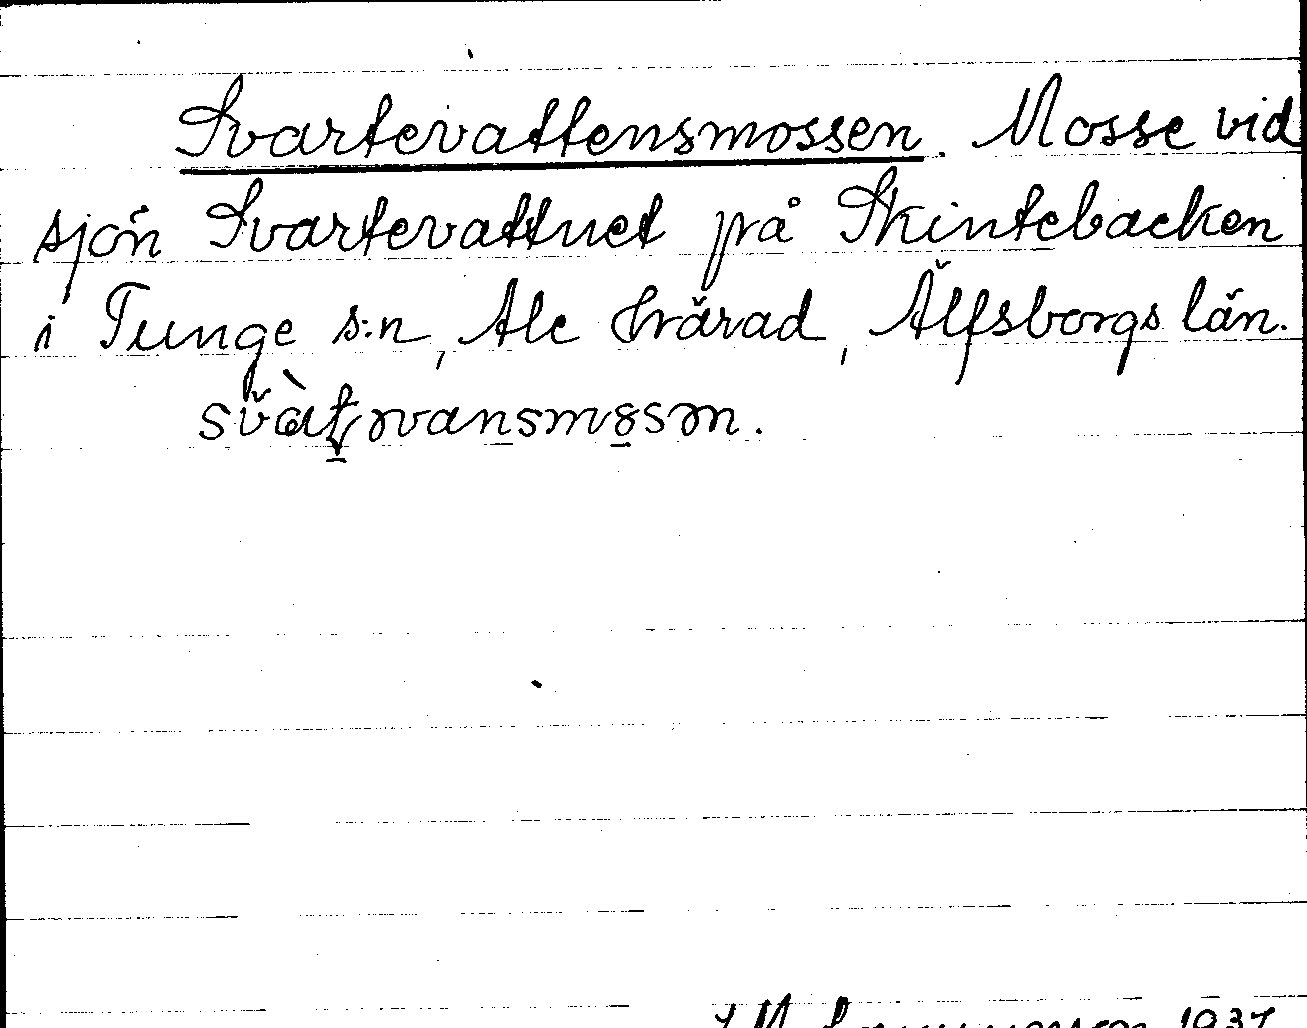 Svartevattensmossen. Mosse vid
sjön Svartevattnet på Skintebacken
i Tunge s:n, Ale härad, Älfsborgs län.
1937